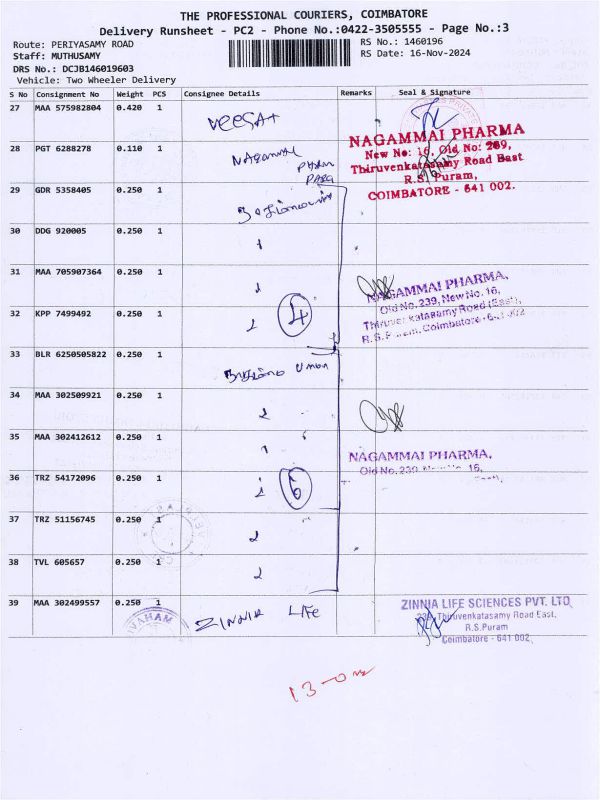 THE PROFESSIONAL COURIERS, COIMBATORE
Delivery Runsheet - PC2 - Phone No.:0422-3505555 - Page No.:3
Route: PERIYASAMY ROAD
RS No.: 1460196
Staff: MUTHUSAMY
RS Date: 16-Nov-2024
DRS No.: DCJB146019603
Vehicle: Two Wheeler Delivery
S No Consignment No Weight PCS Consignee Details Remarks Seal & Signature
27 MAA 575982804 0.420 1
28 PGT 6288278 0.110 1 Nagammai
NAGAMMAI PHARMA
New No: 16, Old No: 239,
Thiruvenkatasamy Road East
R.S. Puram,
COIMBATORE - 641 002.
29 GDR 5358405 0.250 1
30 DDG 920005 0.250 1
31 MAA 705907364 0.250 1
NAGAMMAI PHARMA,
Old No. 239, New No. 16,
Thiruvenkatasamy Road (East),
R.S. Puram, Coimbatore - 641 002
32 KPP 7499492 0.250 1 4
33 BLR 6250505822 0.250 1
34 MAA 302509921 0.250 1
35 MAA 302412612 0.250 1
NAGAMMAI PHARMA,
Old No. 239, 16,
36 TRZ 54172096 0.250 1 6
37 TRZ 51156745 0.250 1
38 TVL 605657 0.250 1
39 MAA 302499557 0.250 1 ZINNIA LIFE
ZINNIA LIFE SCIENCES PVT. LTD
239, Thiruvenkatasamy Road East,
R.S.Puram
Coimbatore - 641 002
13-